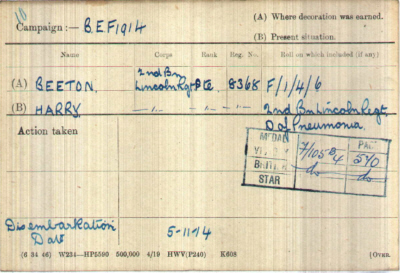 10
Campaign :— B.E.F 1914
(A) Where decoration was earned.
(B) Present situation.
Name Corps Rank Reg. No. Roll on which included (if any)
(A) BEETON. 2nd Bn Lincoln Rgt Pte 8368 F/1/4/6
(B) HARRY —"— —"— —"— 2nd Bn Lincoln Regt
D of Pneumonia.
Action taken
MEDAL PAGE
VICTORY 7/105 B4 570
BRITISH do do
STAR
Disembarkation Date 5-11-14
(6 34 46) W234—HP5590 500,000 4/19 HWV(P240) K608 (OVER.